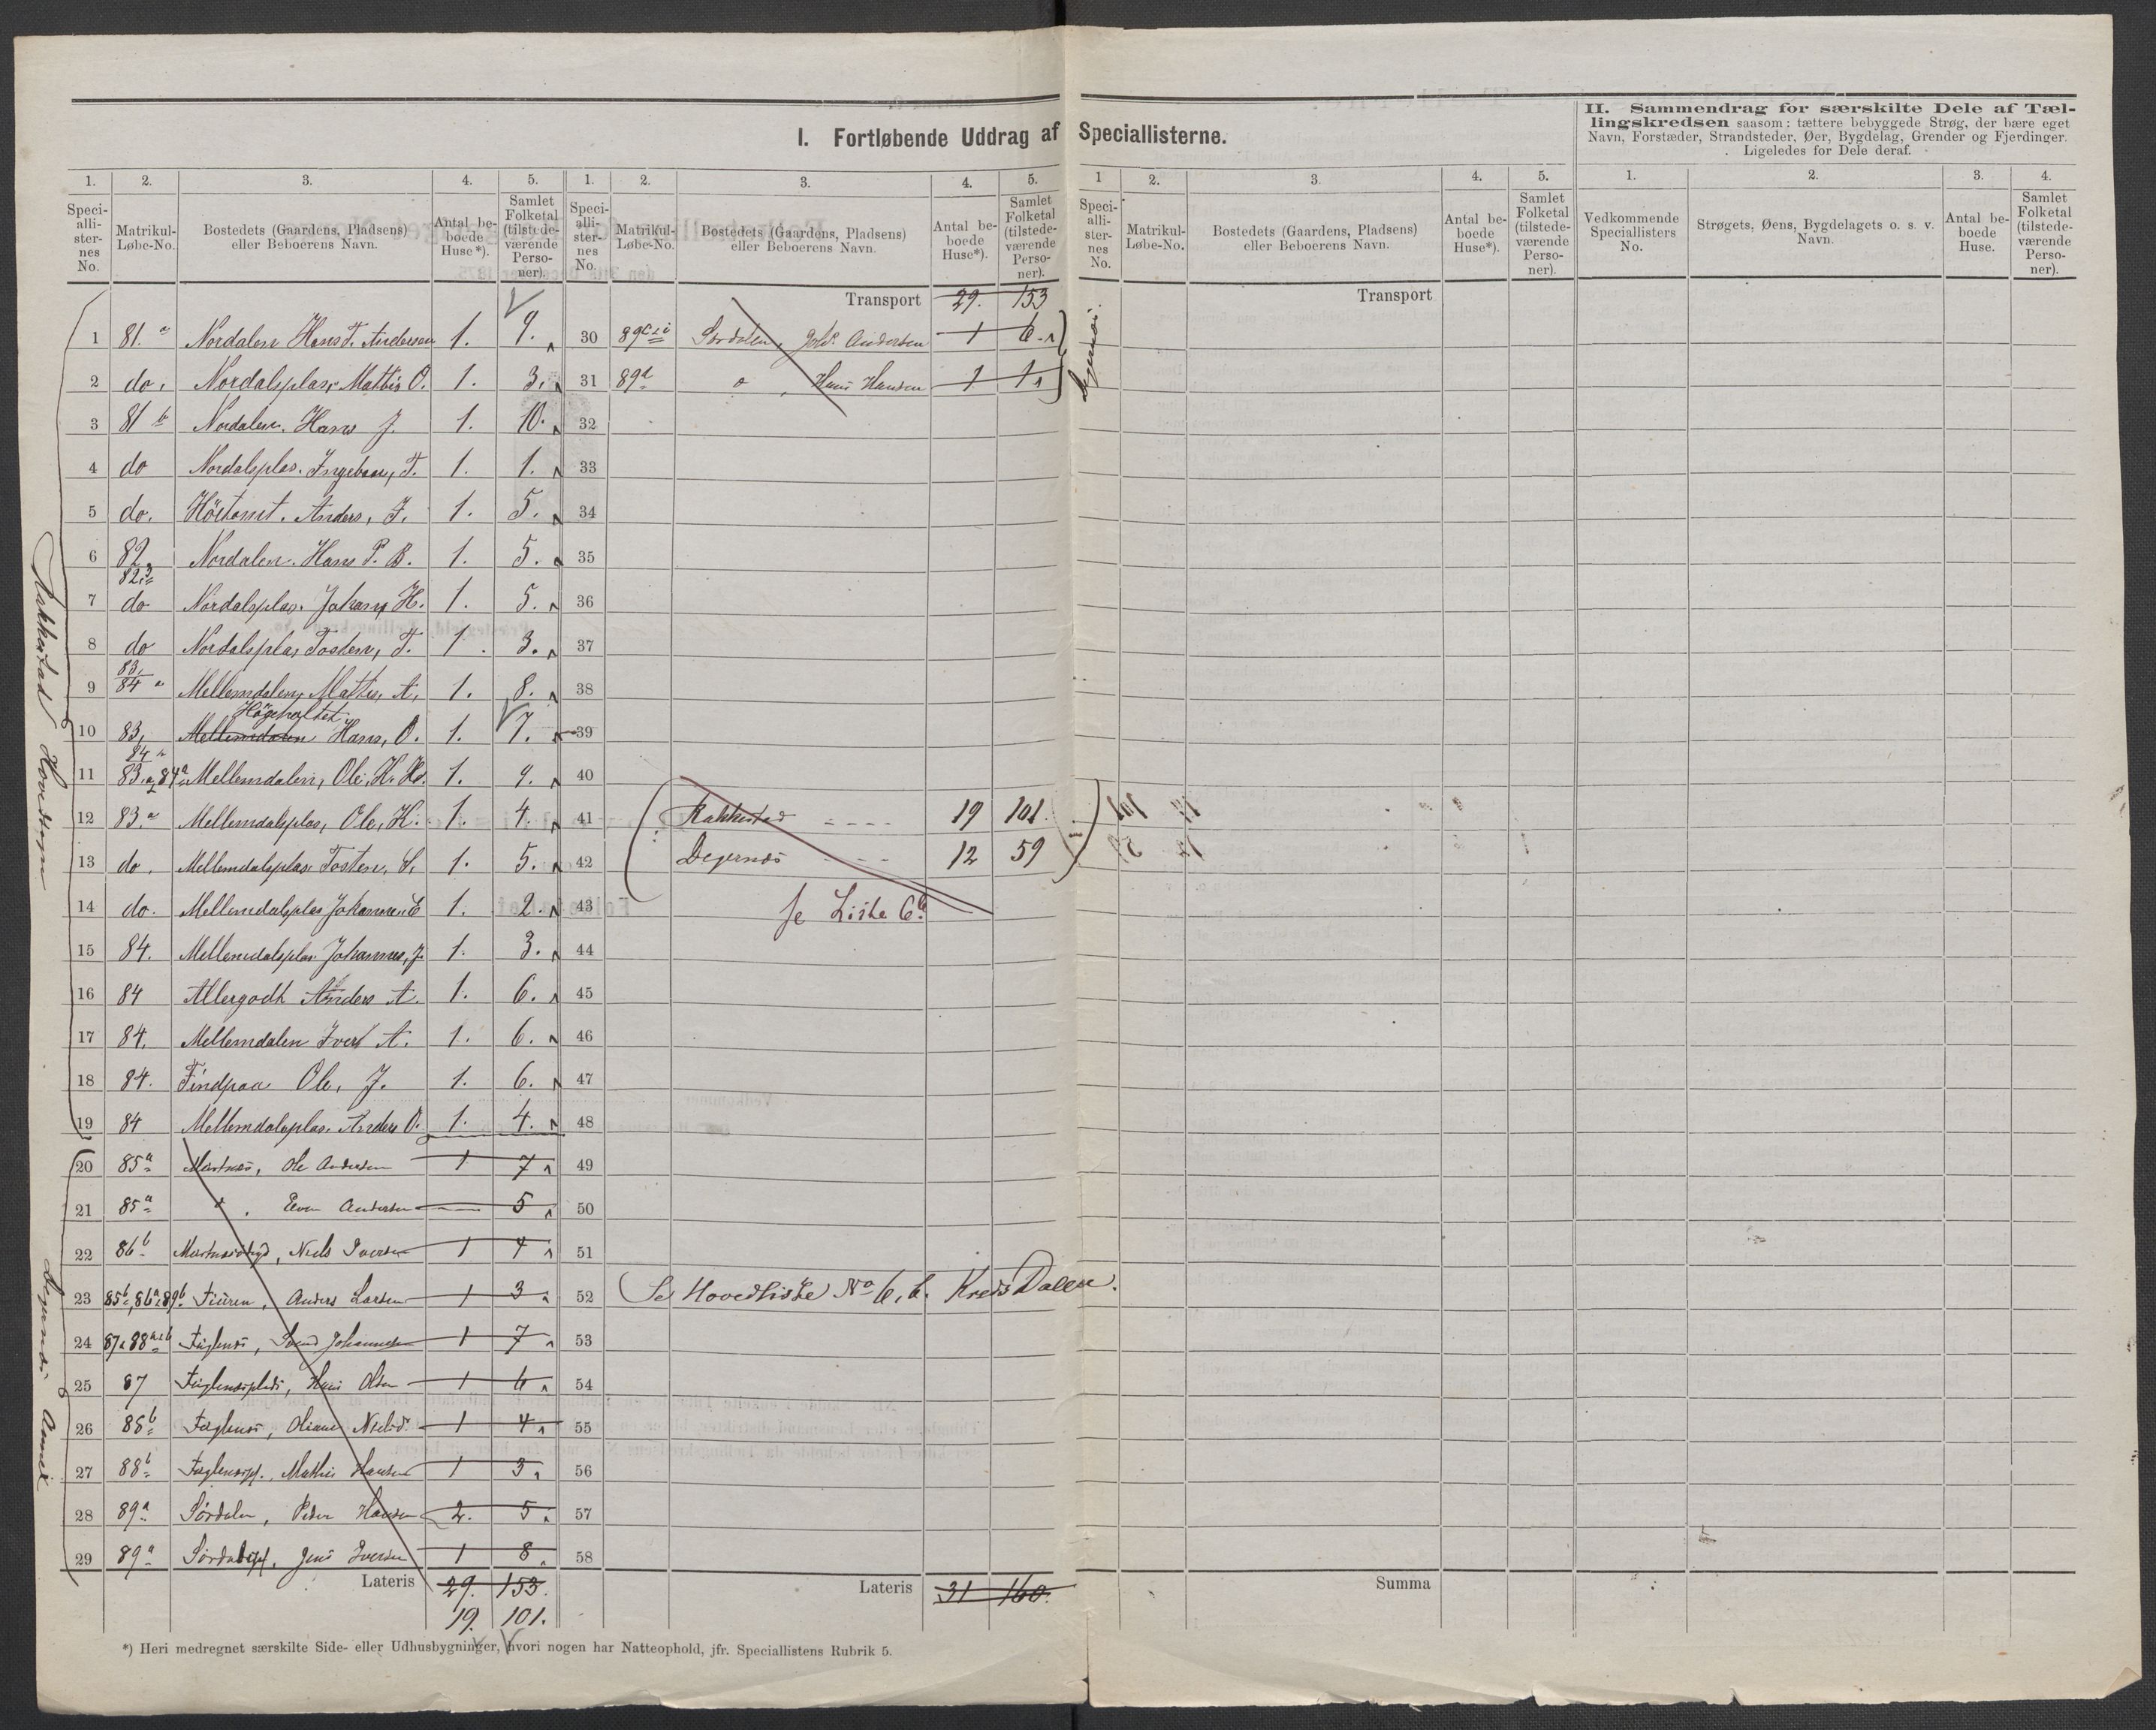 I. Fortløbende Uddrag af Speciallisterne.
II. Sammendrag for særskilte Dele af Tæl-
lingskredsen saasom: tættere bebyggede Strøg, der bære eget
Navn, Forstæder, Strandsteder, Øer, Bygdelag, Grender og Fjerdinger.
Ligeledes for Dele deraf.
1. 2. 3. 4. 5. 1. 2. 3. 4. 5. 1 2. 3. 4. 5. 1. 2. 3. 4.
Speci-alli-ster-nes No. Matrikul-Løbe-No. Bostedets (Gaardens, Pladsens) eller Beboerens Navn. Antal be-boede Huse*). Samlet Folketal (tilstede-værende Perso-ner).
Speci-alli-ster-nes No. Matrikul-Løbe-No. Bostedets (Gaardens, Pladsens) eller Beboerens Navn. Antal be-boede Huse*). Samlet Folketal (tilstede-værende Perso-ner).
Speci-alli-ster-nes No. Matrikul-Løbe-No. Bostedets (Gaardens, Pladsens) eller Beboerens Navn. Antal be-boede Huse*). Samlet Folketal (tilstede-værende Perso-ner).
Vedkommende Speciallisters No. Strøgets, Øens, Bygdelagets o. s. v. Navn. Antal be-boede Huse. Samlet Folketal (tilstede-værende Perso-ner).
Transport 29. 153 Transport
1 81.a Nordalen Hans T. Andersen 1. 9.
2 do. Nordalsplas, Mattis O. 1. 3.
3 81 b Nordalen. Hans J. 1. 10.
4 do Nordalsplas. T. 1. 1.
5 do. Anders, J. 1. 5.
6 82. Nordalen. Hans P. B. 1. 5.
7 do Nordalsplas. Johans H. 1. 5.
8 do Nordalsplas Tosten, T. 1. 3.
9 83, 84 a Mellemdalen, Mattis, A. 1. 8.
10 83, 84 Mellemdalen Hans, O. 1. 7.
11 83.a 84a Mellemdalen, Ole, H. 1. 9.
12 83.a Mellemdalsplas, Ole, H. 1. 4.
13 do. Mellemdalsplas Tosten, S. 1. 5.
14 do. Mellemdalsplas Johannes E 1. 2.
15 84. Mellemdalsplas Johannes, J. 1. 3.
16 84 Allergodt Anders A. 1. 6.
17 84. Mellemdalen Iver A. 1. 6.
18 84. Findpaa Ole, J. 1. 6.
19 84 Mellemdalsplas. Anders O. 1. 4.
20 85a Ole Andersen 1 7
21 85a Even Andersen 5
22 86b Niels Iversen 1 4
23 85b, 86a 89b Anders Larsen 1 3
24 87 & 88 Johannesen 1 7
25 87 Hans Olsen 1 6
26 88b 1 4
27 88b Mathis Hansen 1 3
28 89a Sørdalen, Peder Hansen 2. 5
29 89a Jens Iversen 1 8
Lateris 29. 153.
19. 101.
30 89c Sørdalen, Johs Andersen 1 6
31 89a Hans Hansen 1 1
32
33
34
35
36
37
38
39
40
41 Rakkestad 19 101.
42 Degernæs 12 59
43 se Liste 6b
44
45
46
47
48
49
50
51
52 (Se Hovedliste No 6, b. Kreds Dalen.
53
54
55
56
57
58
Lateris 31 160. Summa
Rakkestad Hovedsogn
Degernæs Annex
Degernæs.
*) Heri medregnet særskilte Side- eller Udhusbygninger, hvori nogen har Natteophold, jfr. Speciallistens Rubrik 5.